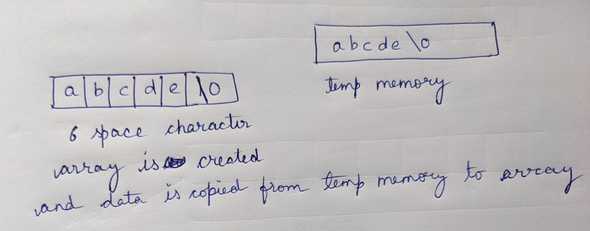 abcde\0
temp memory
a b c d e \0
6 space character
array is created
and data is copied from temp memory to array